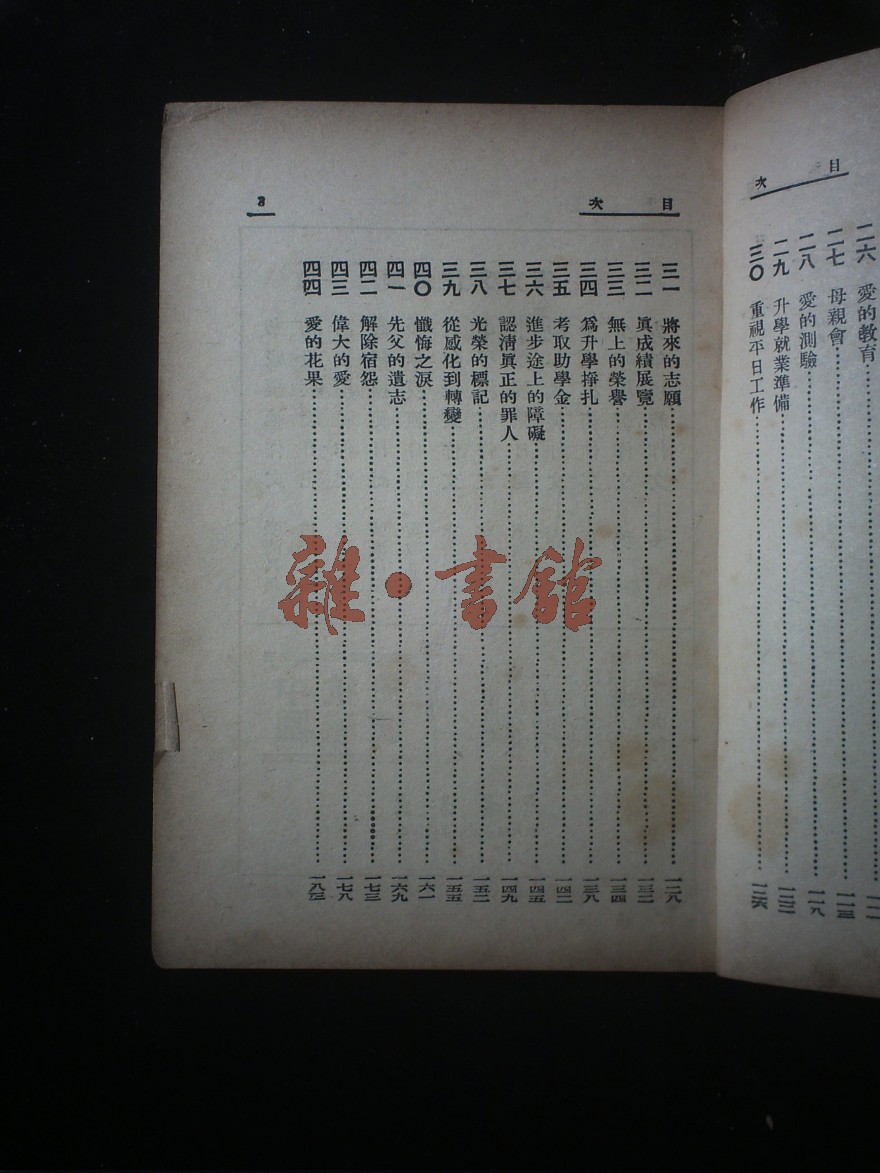 目 次
二六 愛的教育
二七 母親會
二八 愛的測驗 一一八
二九 升學就業準備
三〇 重視平日工作
目 次 3
三一 將來的志願 一二八
三二 眞成績展覽 一三一
三三 無上的榮譽 一三四
三四 爲升學掙扎 一三八
三五 考取助學金 一四二
三六 進步途上的障礙 一四五
三七 認清眞正的罪人 一四九
三八 光榮的標記 一五二
三九 從感化到轉變 一五五
四〇 懺悔之淚 一六一
四一 先父的遺志 一六九
四二 解除宿怨 一七三
四三 偉大的愛 一七八
四四 愛的花果 一八三
雜·書館